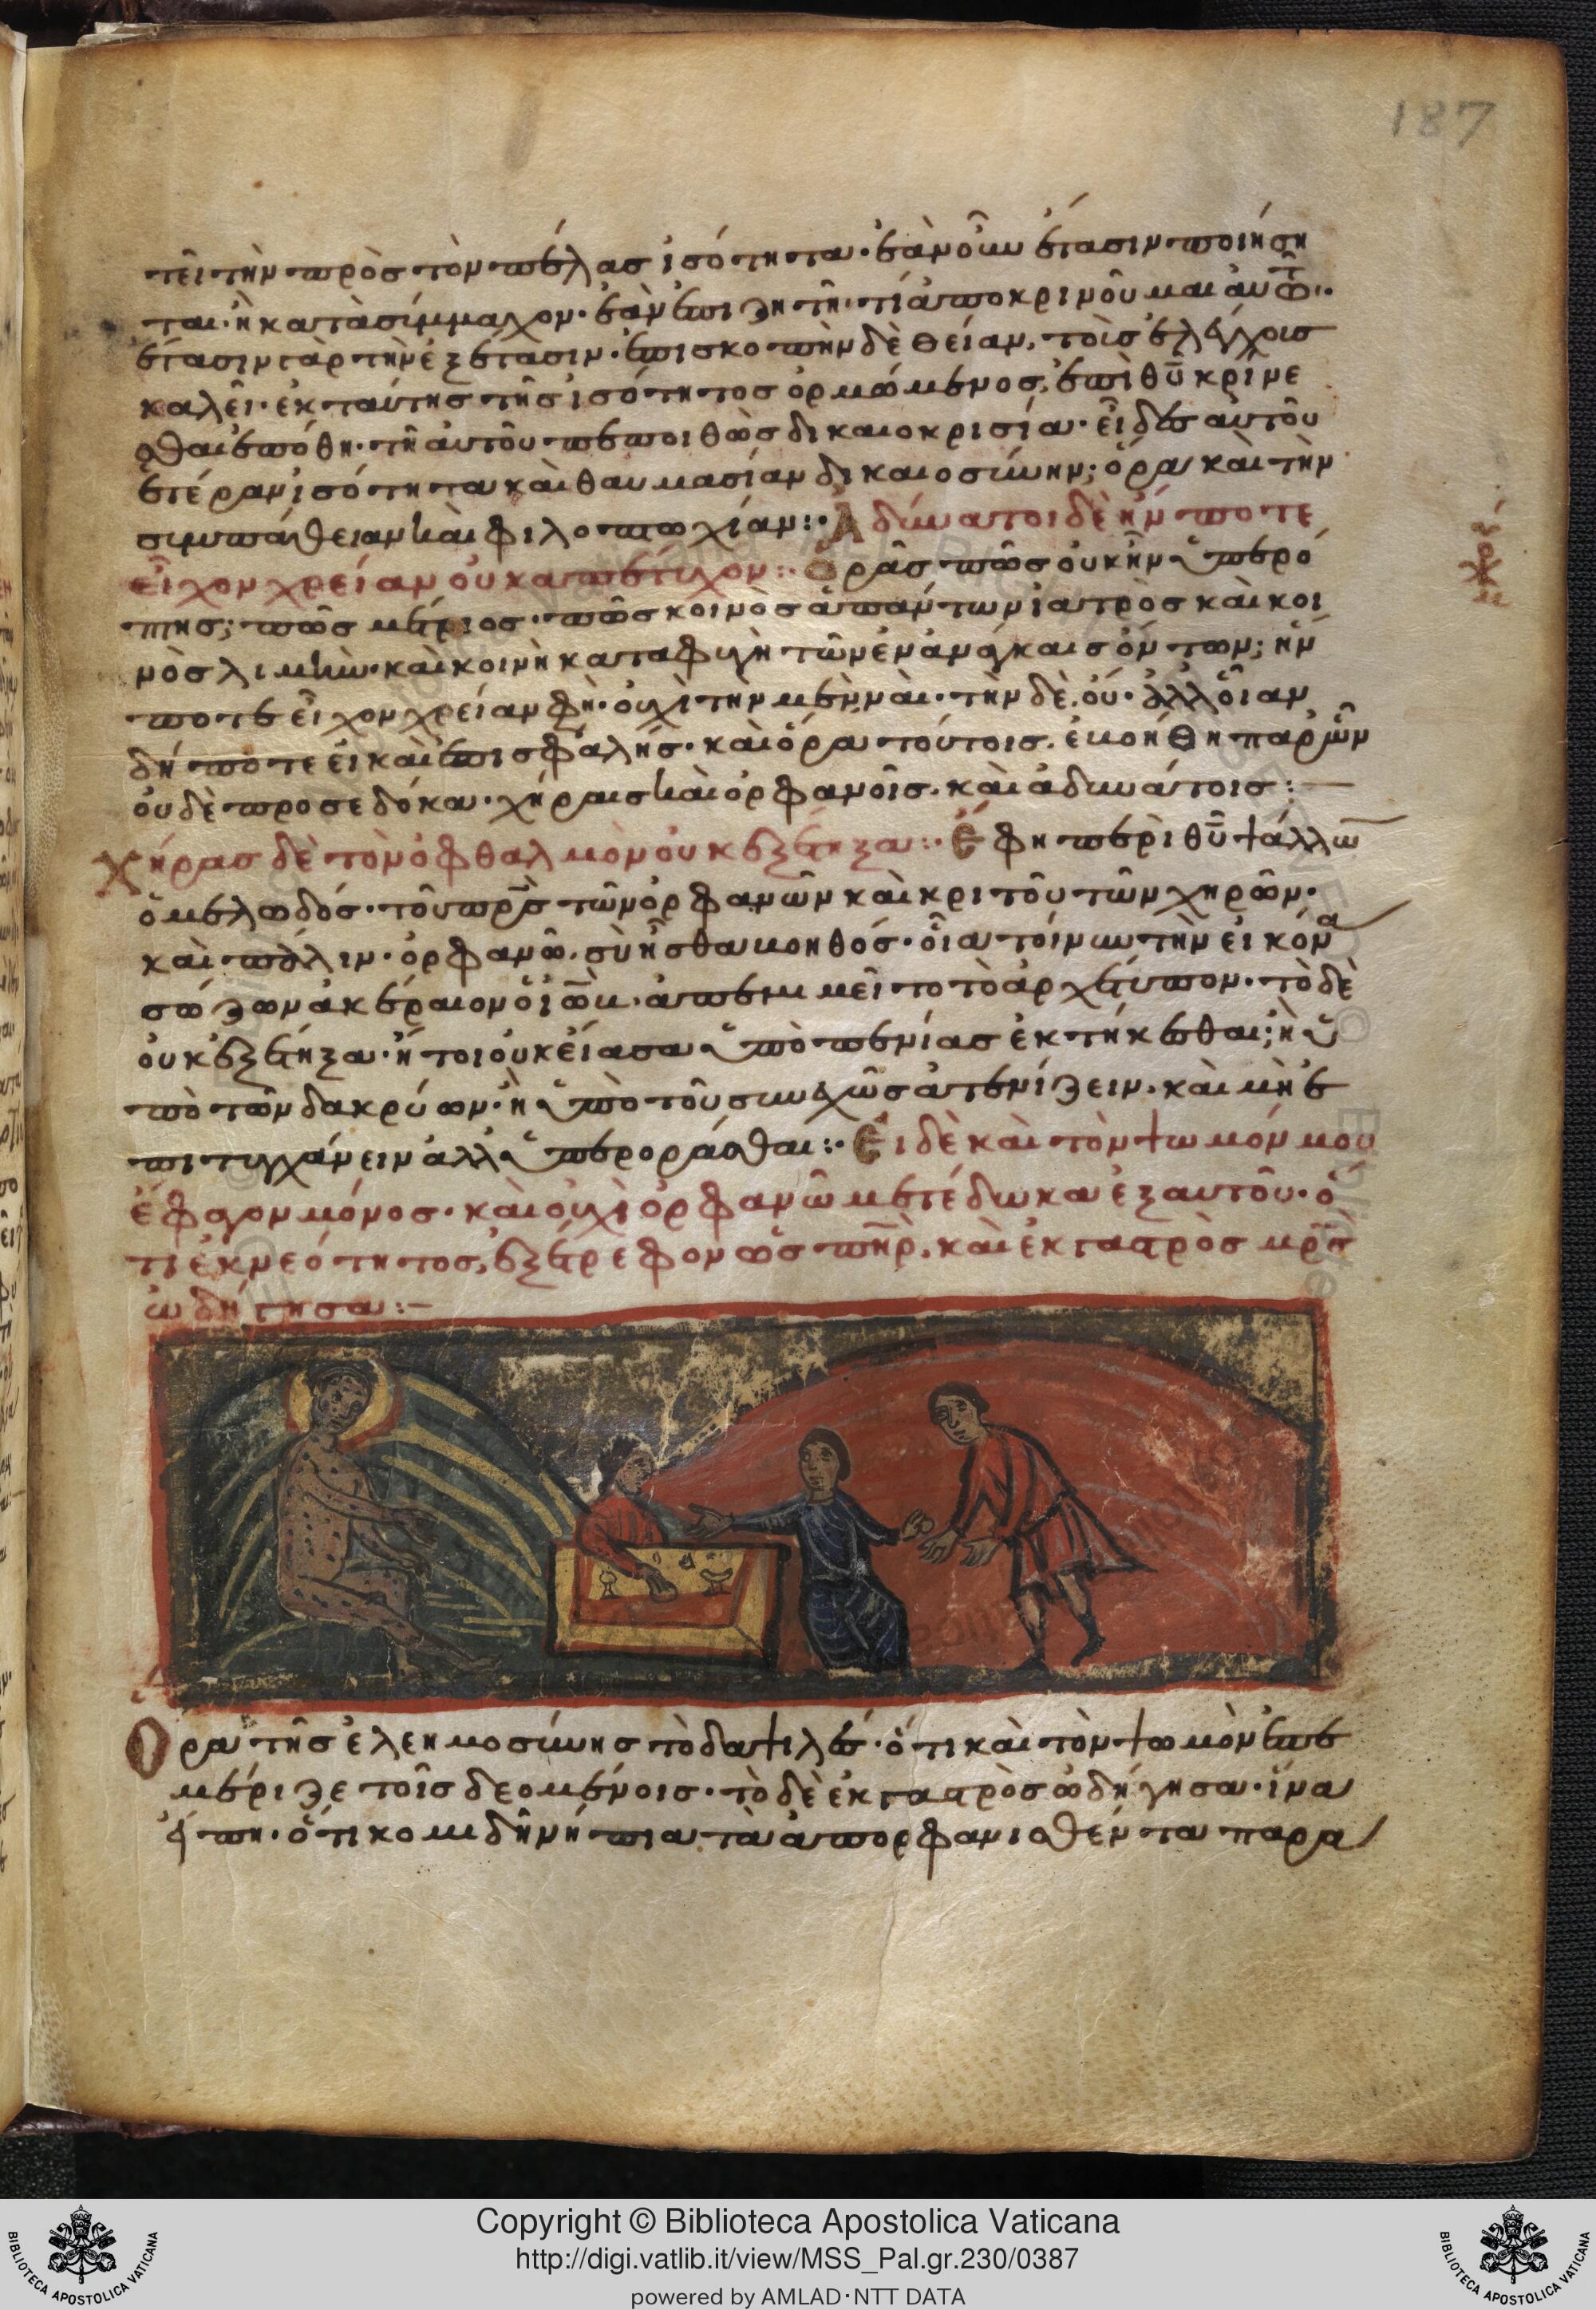 187
τεῖ τὴν πρὸς τὸν πέλας ἰσότητα· ἐὰν οὖν ἔτασιν ποιήση
ται· ἢ κατὰ σύμμαχον· ἐὰν ἐπιζητῆ· τί ἀποκρινοῦμαι αὐτῶ·
ἔτασιν γὰρ τὴν ἐξέτασιν· ἐπισκοπὴν δὲ θείαν, τοῖς ἐλέγχοις
καλεῖ· ἐκ ταύτης τῆς ἰσότητος ὁρμώμενος, ἐπὶ θῦ κρίνε
σθαι ἐπόθη· τῆ αὐτοῦ πεποιθὼς δικαιοκρισία· εἶδες αὐτοῦ
ἑτέραν ἰσότητα καὶ θαυμασίαν δικαιοσύνην; ὅρα καὶ τὴν
συμπάθειαν καὶ φιλοπτωχίαν:· Ἀδύνατοι δὲ ἥν ποτε
εἶχον χρείαν οὐκ ἀπέτυχον:· Ὁρᾶς πῶς οὐκ ἦν ὑπερό
πτης; πῶς μέτριος· πῶς κοινὸς ἁπάντων ἰατρὸς καὶ κοι
νὸς λιμὴν· καὶ κοινὴ καταφυγὴ τῶν ἐν ἀνάγκαις ὄντων; ἥν
ποτε εἶχον χρείαν φη· οὐχὶ τὴν μὲν ναὶ· τὴν δὲ οὐ· ἀλλ οἵαν
δήποτε εἰ καὶ ἐπισφαλής· καὶ ὅρα τούτοις. ἐβοήθη παρ ὧν
οὐδὲ προσεδόκα· χήραις καὶ ὀρφανοῖς. καὶ ἀδυνάτοις:—
Χήρας δὲ τὸν ὀφθαλμὸν οὐκ ἐξέτηξα:· Ἔφη περὶ θῦ ψάλλων
ὁ μελωδός· τοῦ πρς τῶν ὀρφανῶν καὶ κριτοῦ τῶν χηρῶν·
καὶ πάλιν· ὀρφανῶ. σὺ ἦσθα βοηθός· οἷα τοίνυν τὴν εἰκόνα
σώζων ἀκέραιον ὁ ἰὼβ· ἀπεμιμεῖτο τὸ ἀρχέτυπον· τὸ δὲ
οὐκ ἐξέτηξα· ἤτοι οὐκ εἴασα ὑπὸ πενίας ἐκτήκεσθαι; ἢ ὑ
πὸ τῶν δακρύων· ἢ ὑπὸ τοῦ συνεχῶς ἀτενίζειν. καὶ μὴ ἐ
πιτυγχάνειν ἀλλ ὑπερορᾶσθαι:· Εἰ δὲ καὶ τὸν ψωμόν μου
ἔφαγον μόνος· καὶ οὐχὶ ὀρφανῶ μετέδωκα ἐξ αυτοῦ· ὅ
τι ἐκ νεότητος, ἐξέτρεφον ὡς πηρ. καὶ ἐκ γαστρὸς μρς
ὡδήγησα:—
Ὅρα τῆς ἐλεημοσύνης τὸ δαψιλές· ὅτι καὶ τὸν ψωμὸν ἐπε
μέριζε τοῖς δεομένοις· τὸ δὲ ἐκ γαστρὸς ὡδήγησα· ἵνα
εἴπη· ὅτι κομιδῆ νήπια τὰ ἀπορφανισθέντα παρα
Copyright © Biblioteca Apostolica Vaticana
http://digi.vatlib.it/view/MSS_Pal.gr.230/0387
powered by AMLAD·NTT DATA
BIBLIOTECA APOSTOLICA VATICANA
BIBLIOTECA APOSTOLICA VATICANA